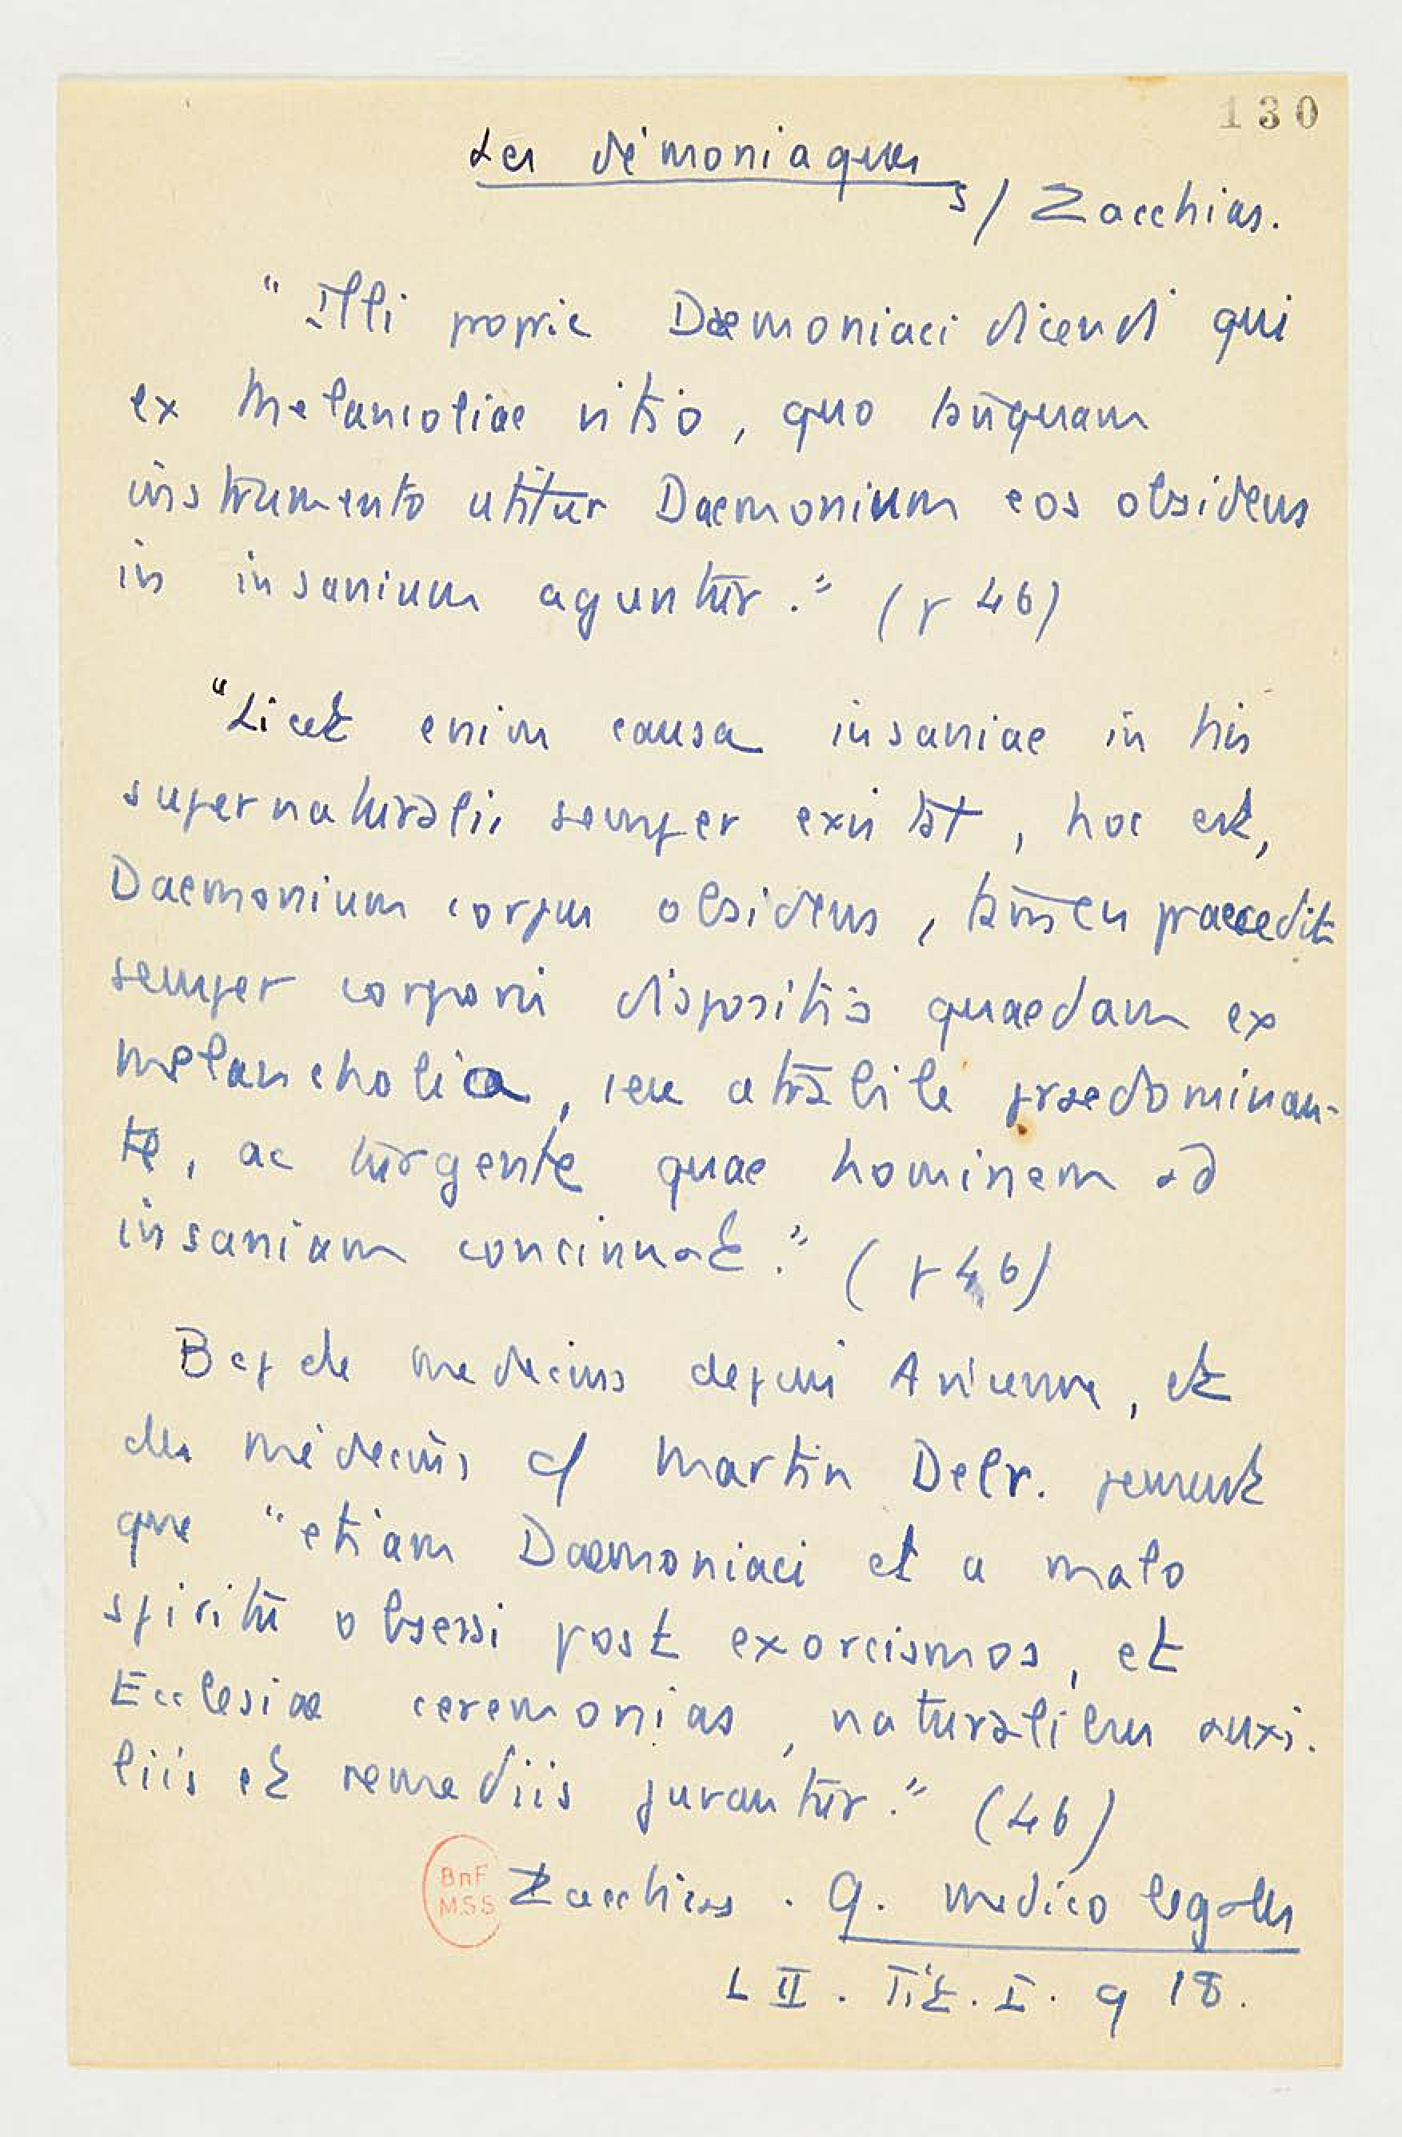 130
Les démoniaques
s/ Zacchias.
"Illi proprie Daemoniaci dicendi qui
ex Melancoliae vitio, quo tanquam
instrumento utitur Daemonium eos obsidens
in insanium aguntur." (p 46)
"Licet enim causa insaniae in his
supernaturalis semper existat, hoc est,
Daemonium corpus obsidens, tamen praecedit
semper corporis dispositio quaedam ex
melancholia, seu atrabile praedominan-
te, ac turgente quae hominem ad
insaniam concinnat." (p 46)
Bcp de medecins depuis Avicenne, et
des médecins cf Martin Delr. pensent
que "etiam Daemoniaci et a malo
spiritu obsessi post exorcismos, et
Ecclesiae ceremonias, naturalibus auxi-
liis et remediis juvantur." (46)
BnF
MSS
Zacchias . Q. medico legales
L II . Tit. I. q 18.